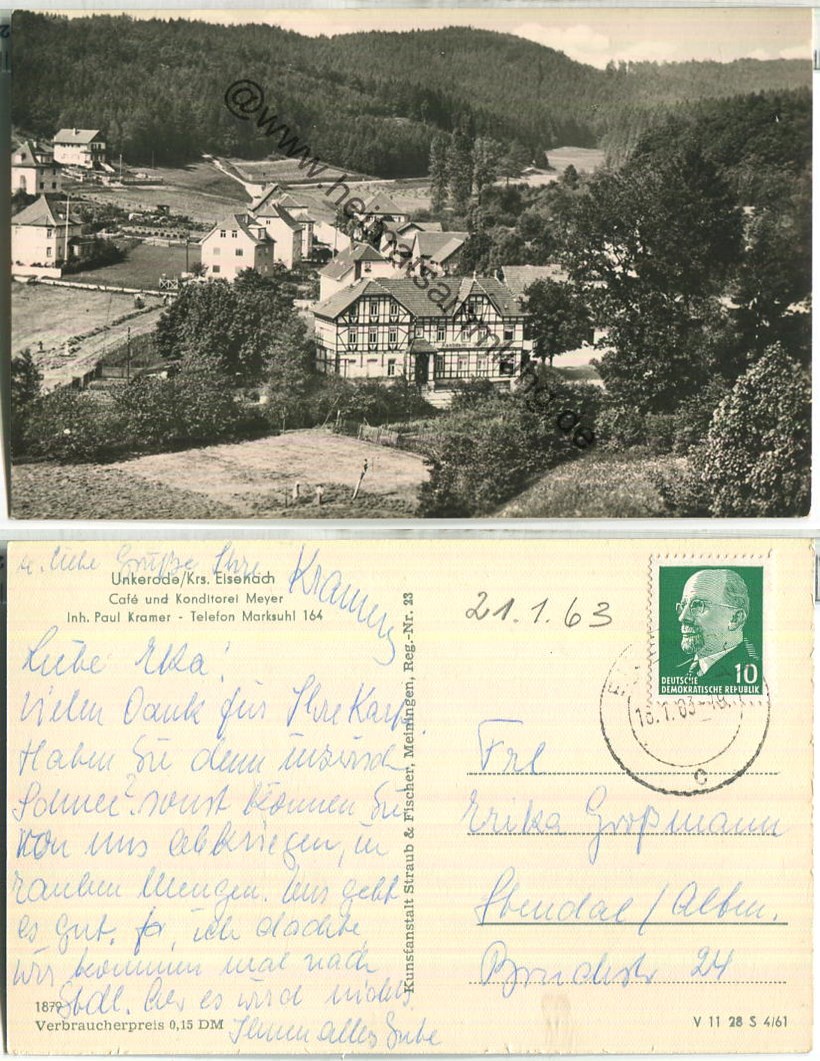 @www.heimatsammlung.de
u. liebe Grüße Ihre Kramers
Unkerode/Krs. Eisenach
Café und Konditorei Meyer
Inh. Paul Kramer - Telefon Marksuhl 164
Liebe Erika!
Vielen Dank für Ihre Karte.
Haben Sie denn inzwisch
Schnee? sonst können Sie
von uns abkriegen, in
rauhen Mengen. Uns geht
es gut. ich dachte,
wir kommen mal nach
Stdl. aber es wird nichts.
Ihnen alles Gute
1879
Verbraucherpreis 0,15 DM
Kunstanstalt Straub & Fischer, Meiningen, Reg.-Nr. 23
21.1.63
10
DEUTSCHE
DEMOKRATISCHE REPUBLIK
18.1.63
c
Frl
Erika Großmann
Stendal / Altm.
Bruchstr 24
V 11 28 S 4/61